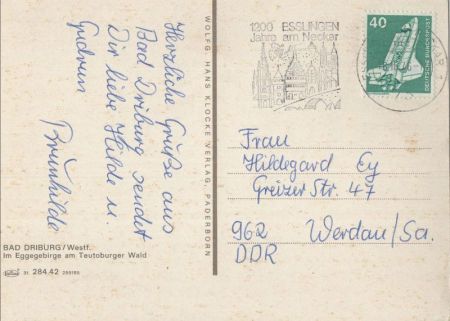 Herzliche Grüße aus
Bad Driburg sendet
Dir liebe Hilde u.
Gudrun
Brunhilde
BAD DRIBURG/Westf.
Im Eggegebirge am Teutoburger Wald
31 284.42
WOLFG. HANS KLOCKE VERLAG, PADERBORN
1200 ESSLINGEN
Jahre am Neckar
40
DEUTSCHE BUNDESPOST
Frau
Hildegard Ey
Greizer Str. 47
962 Werdau/Sa.
DDR